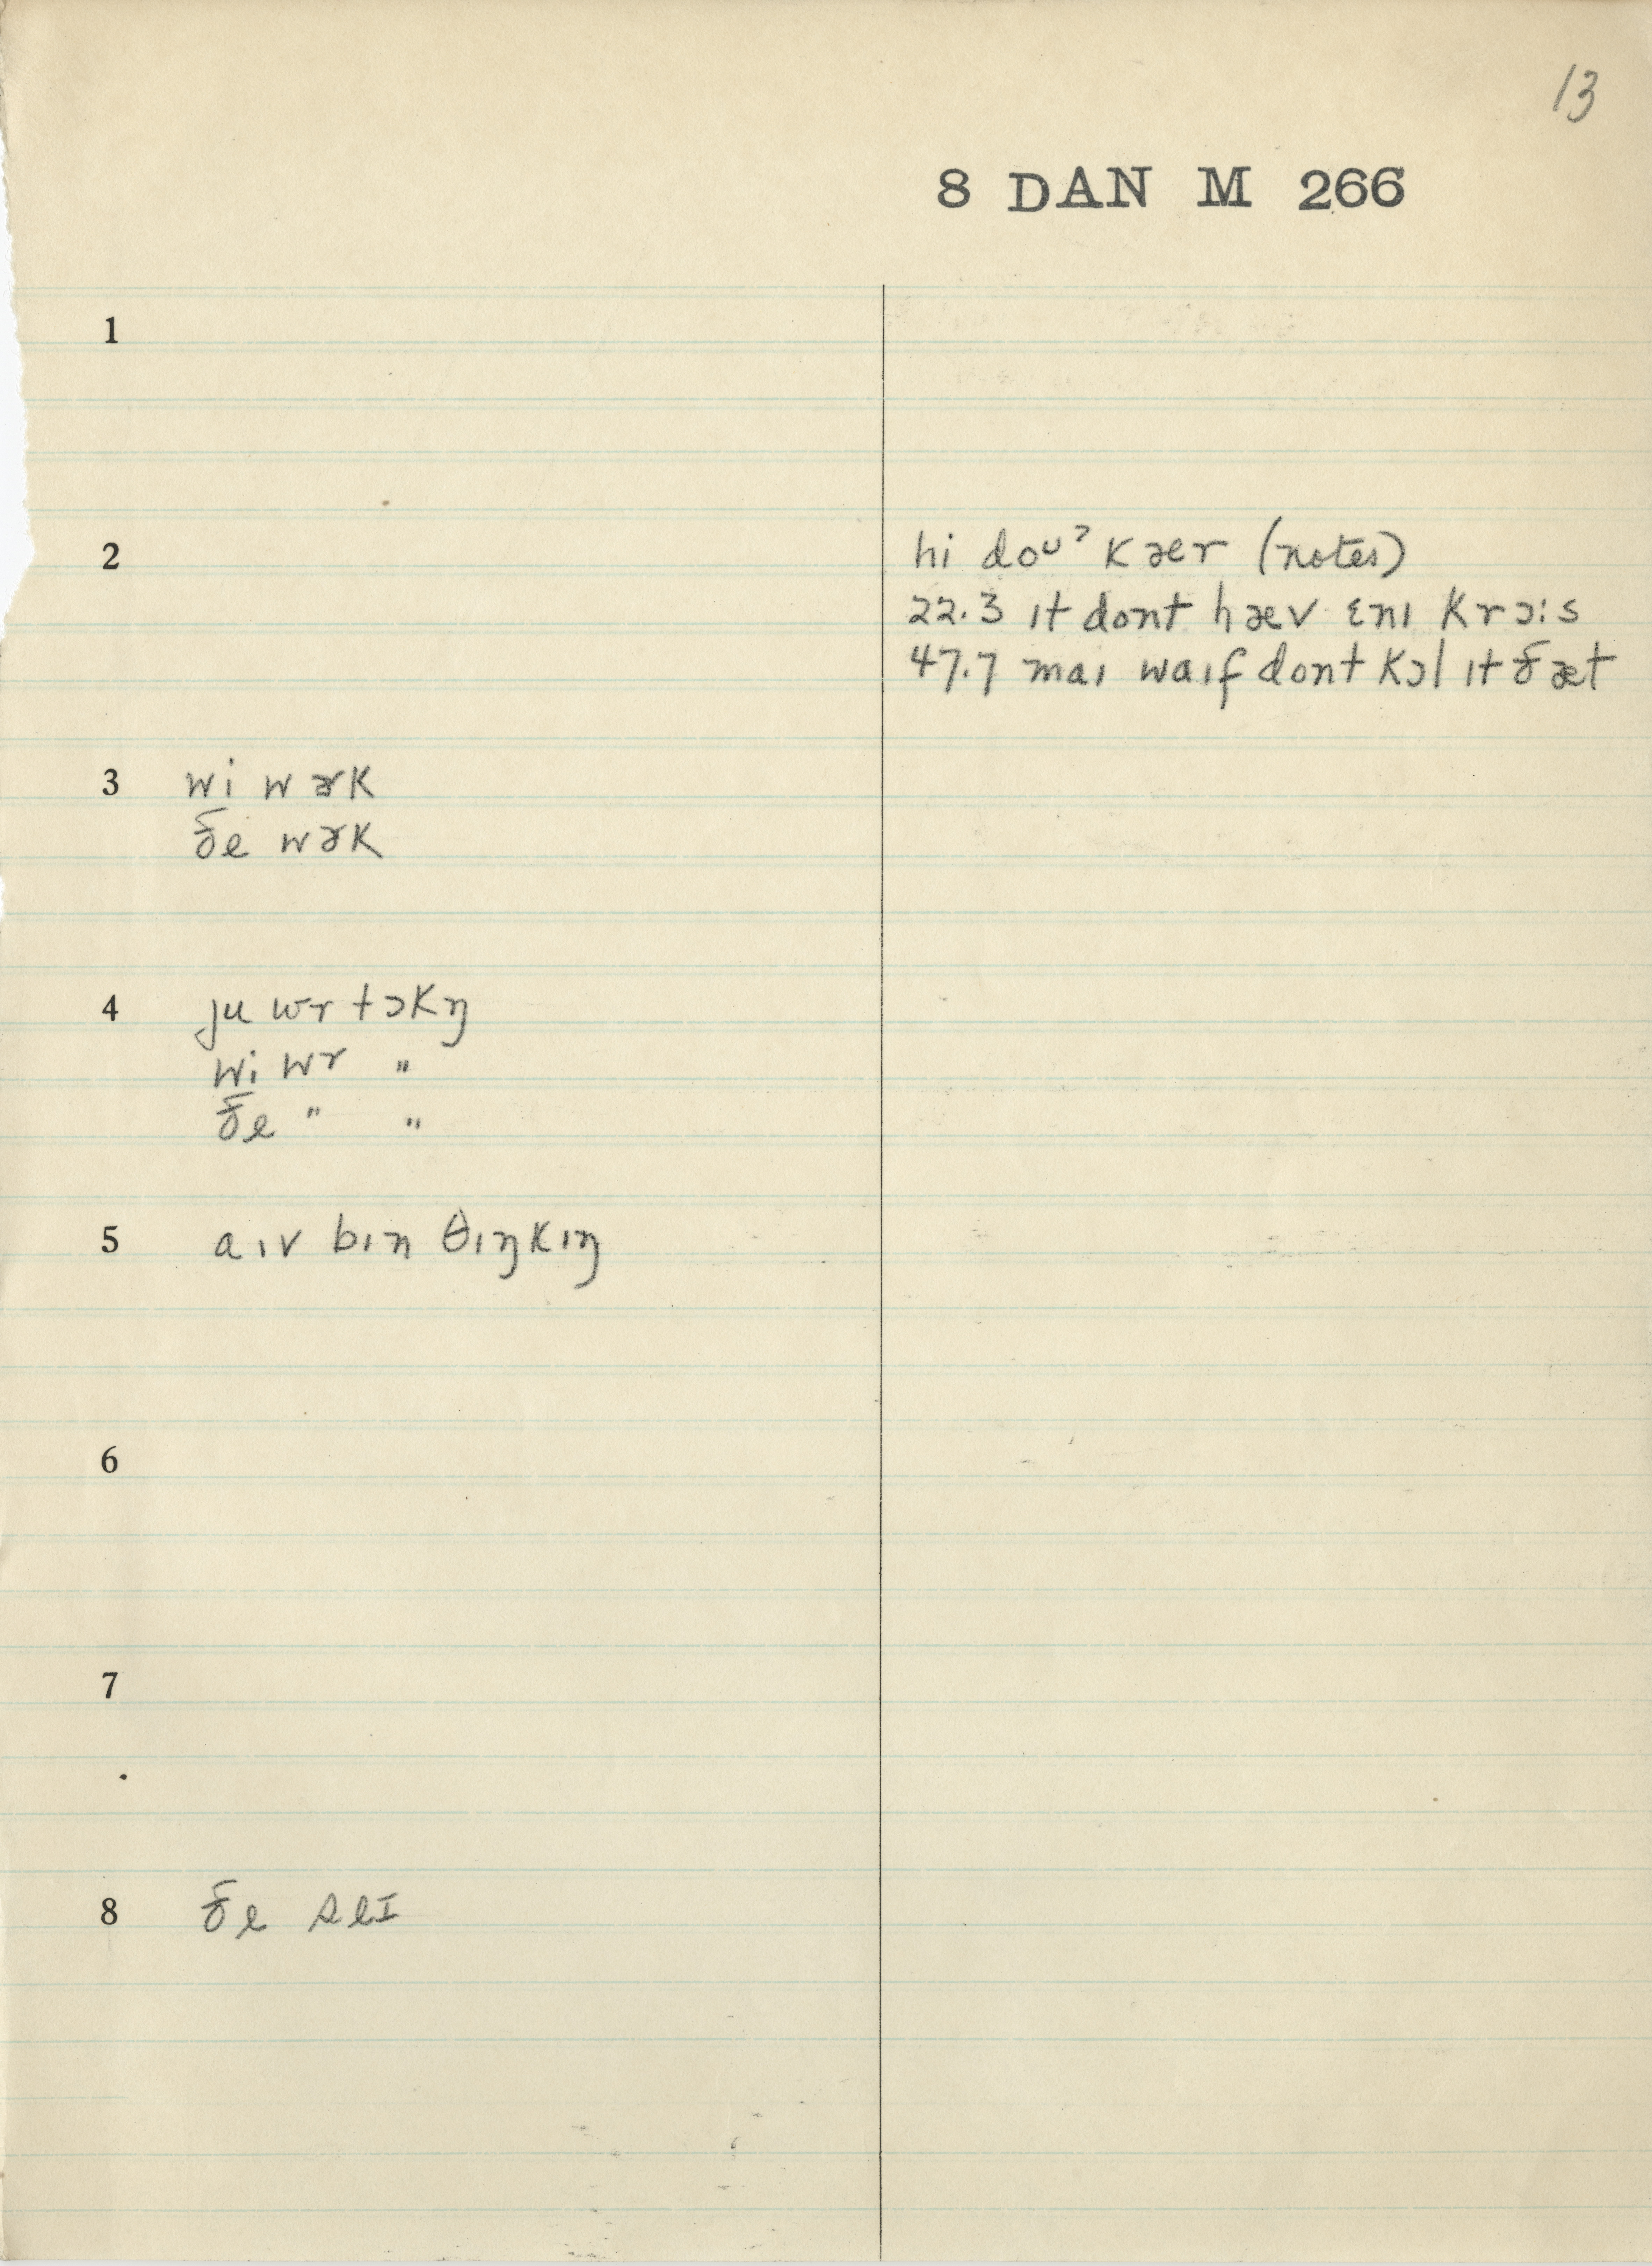 13
8 DAN M 266
1
2 hi doᴜˀ kær (notes)
22.3 ɪt dont hæv ɛnɪ krɔ:s
47.7 maɪ waɪf dont kɔl ɪt ðæt
3 wi wɚk
ðe wɚk
4 ju wr tɔkŋ
wi wr "
ðe " "
5 aɪv bɪn θɪŋkɪŋ
6
7
8 ðe seɪ